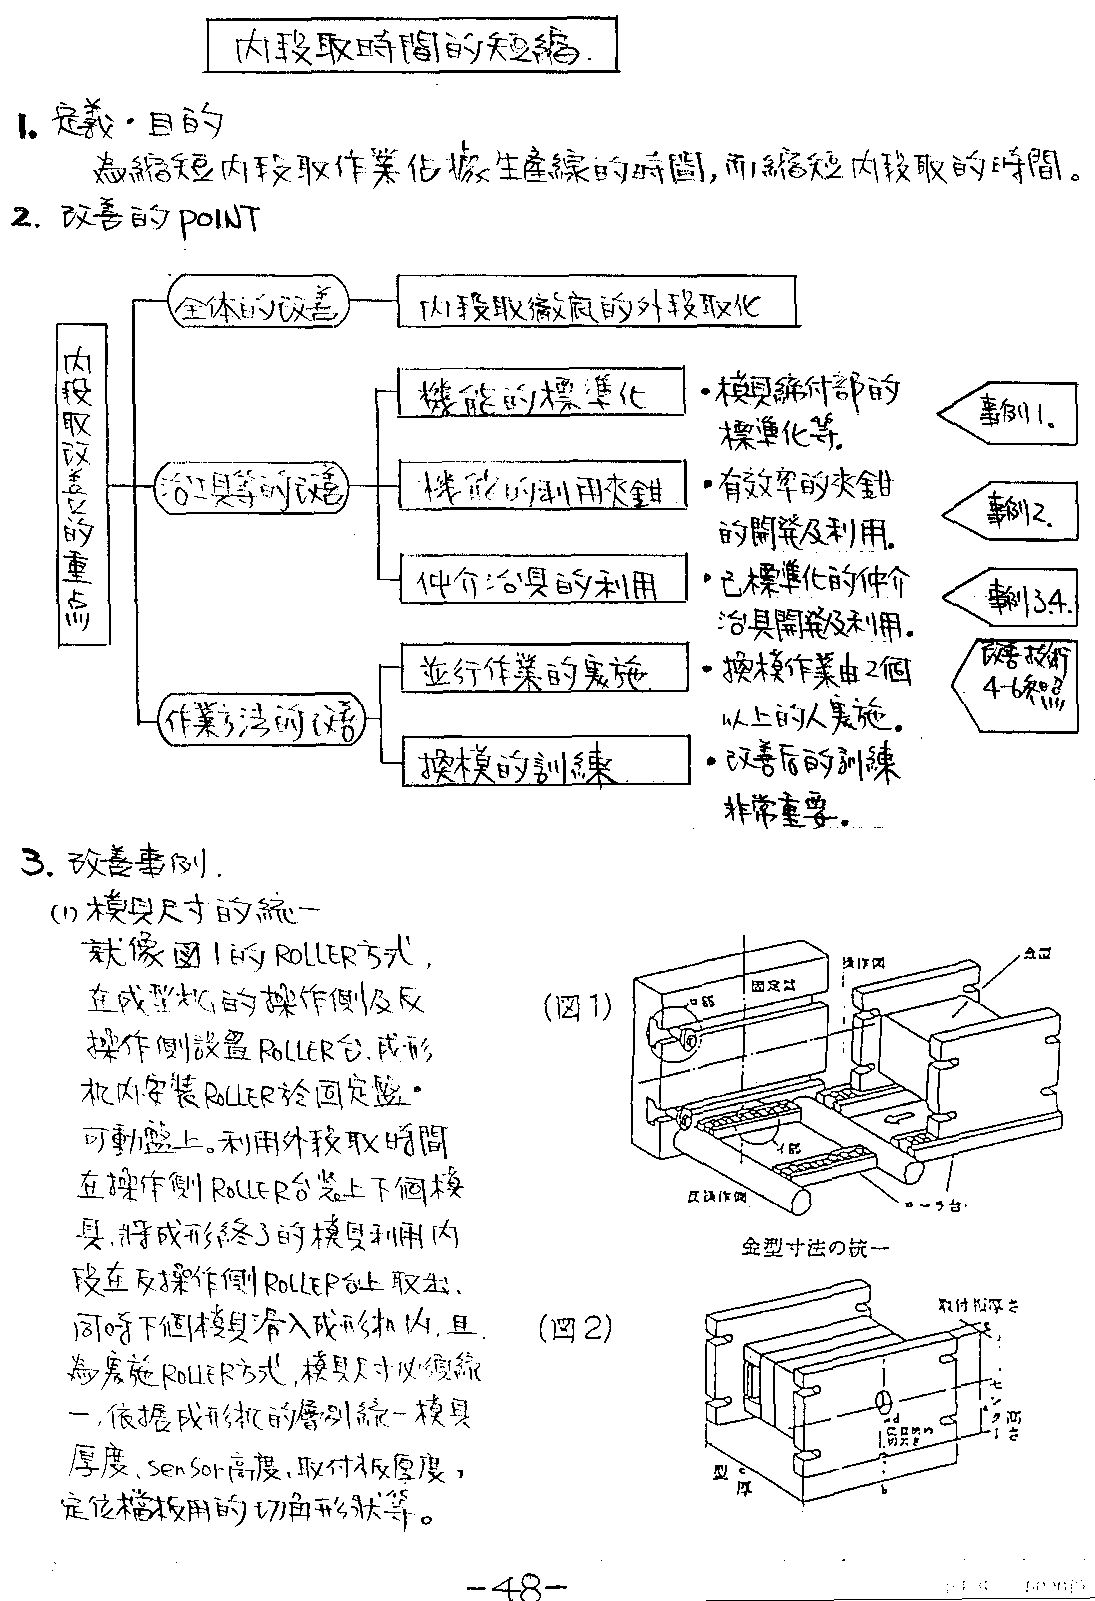 内段取時間的短縮.
1. 定義・目的
為縮短內段取作業佔據生產線的時間,而縮短內段取的時間。
2. 改善的POINT
內段取改善的重点
全体的改善
內段取徹底的外段取化
治具等的改善
機能的標準化
・模具締付部的
標準化等.
事例1.
機能的利用夾鉗
・有效率的夾鉗
的開発及利用.
事例2.
仲介治具的利用
・已標準化的仲介
治具開発及利用.
事例3.4.
作業方法的改善
並行作業的実施
・換模作業由2個
以上的人実施.
改善技術
4-6参照
換模的訓練
・改善后的訓練
非常重要.
3. 改善事例.
(1) 模具尺寸的統一
就像図1的ROLLER方式,
在成型机的操作側及反
操作側設置ROLLER台.成形
机內安装ROLLER於固定盤・
可動盤上。利用外段取時間
在操作側ROLLER台裝上下個模
具.將成形終了的模具利用內
段在反操作側ROLLER台上取出.
同時下個模具滑入成形机內.且
為実施ROLLER方式,模具尺寸必須統
一.依据成形机的層別統一模具
厚度、sensor高度、取付板厚度,
定位檔板用的切角形狀等。
(図1)
固定盤
操作側
金型
ロ部
イ部
反操作側
ローラ台
金型寸法の統一
(図2)
取付板厚さ
センター高さ
型厚
-48-